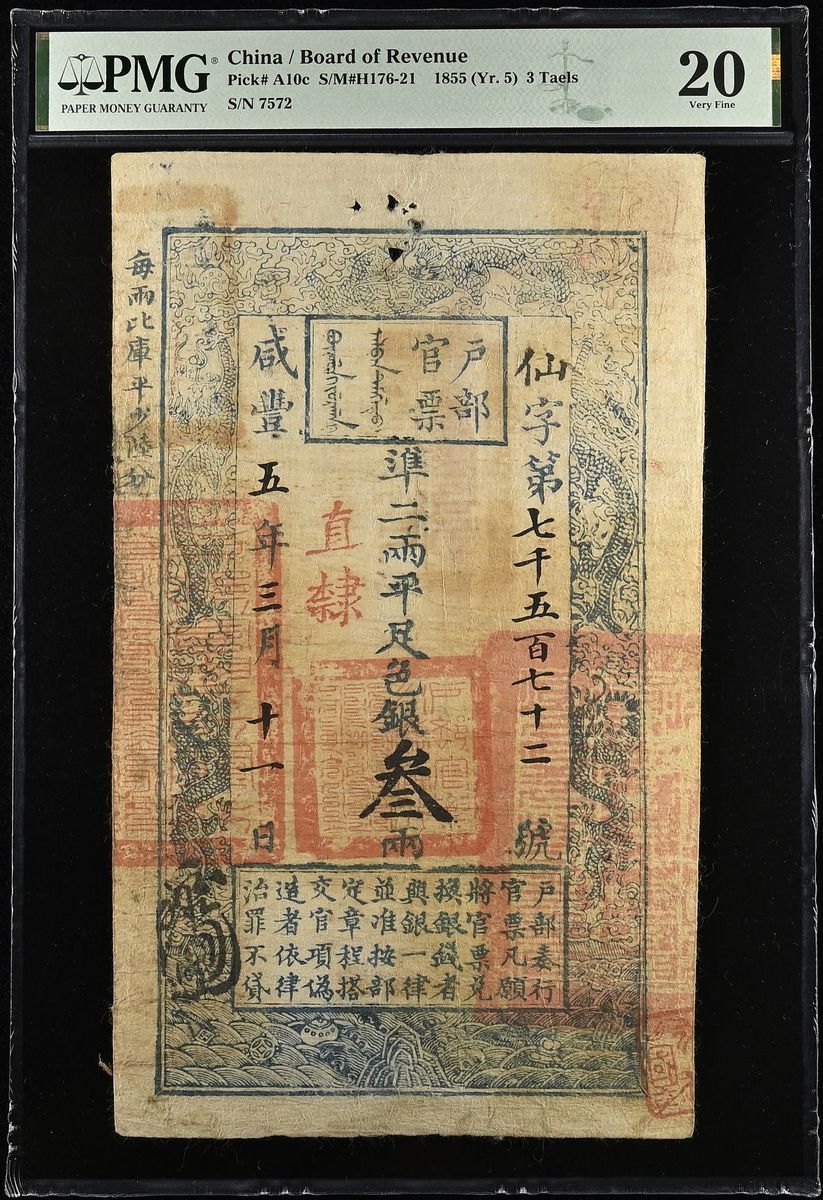 PMG®
PAPER MONEY GUARANTY
China / Board of Revenue
Pick# A10c S/M#H176-21 1855 (Yr. 5) 3 Taels
S/N 7572
20
Very Fine
仙字第七千五百七十二號
戶部
官票
準二兩平足色銀叁兩
直隸
咸豐五年三月十一日
每兩比庫平少陸分
戶部奏行
官票凡願
將官票兌
換銀錢者
與銀一律
並准按部
定章程搭
交官項偽
造者依律
治罪不貸